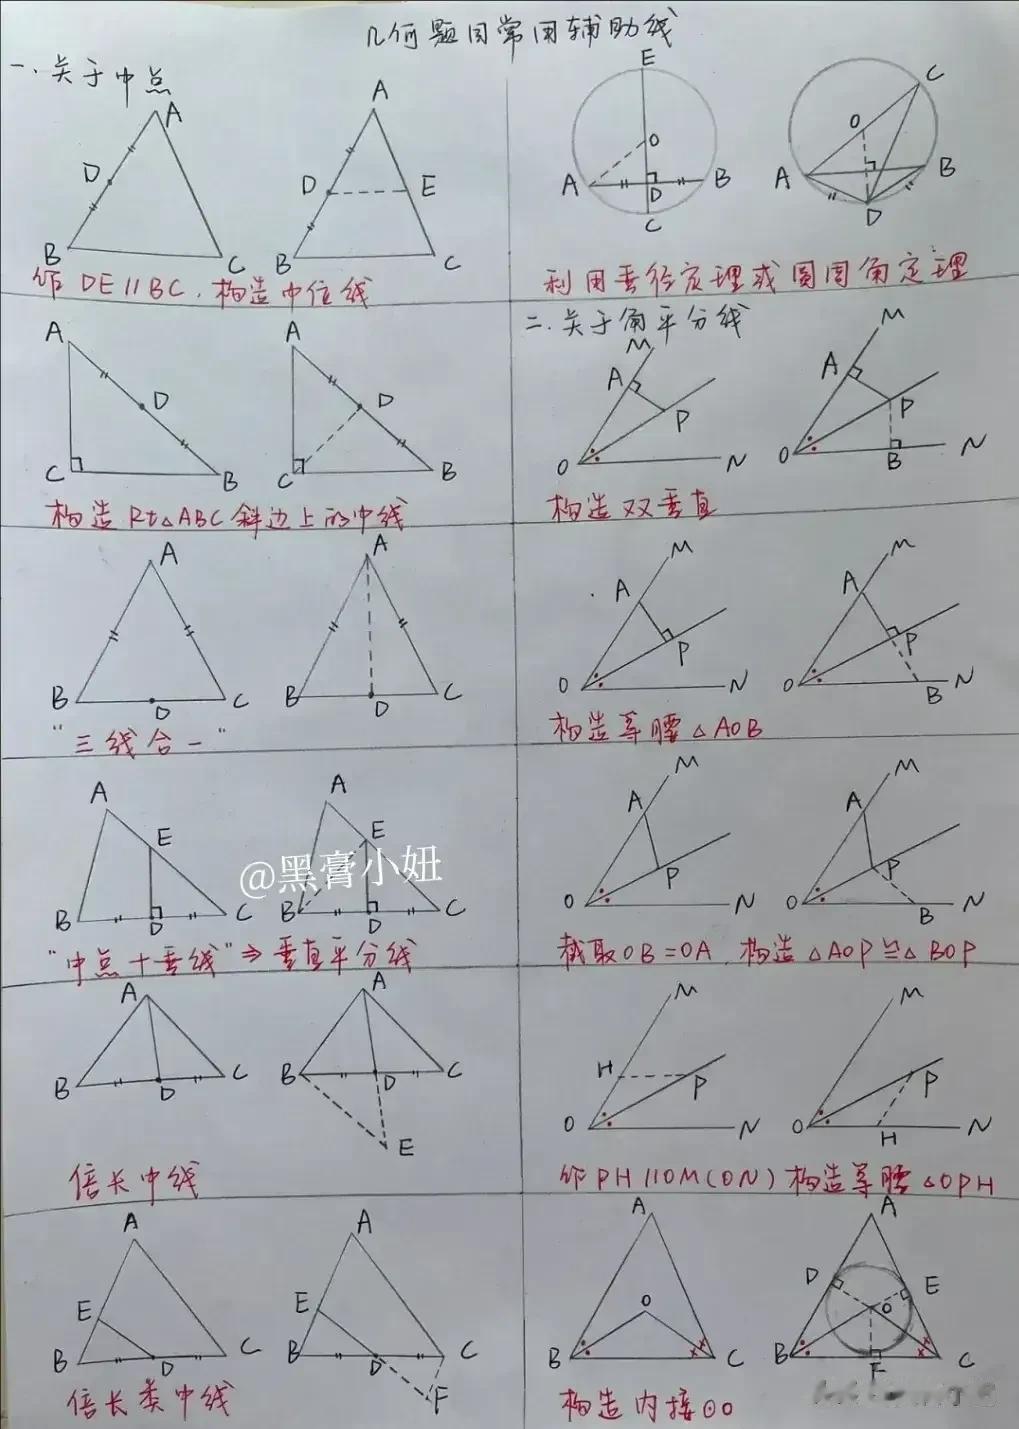 几何题目常用辅助线
一.关于中点
A
D
B
C
A
D
E
B
C
作 DE∥BC.构造中位线
E
O
A
D
B
C
C
O
A
B
D
利用垂径定理或圆周角定理
A
D
C
B
A
D
C
B
构造Rt△ABC斜边上的中线
二.关于角平分线
M
A
P
O
N
M
A
P
O
B
N
构造双垂直
A
B
D
C
A
B
D
C
"三线合一"
M
A
P
O
N
M
A
P
O
B
N
构造等腰△AOB
A
E
B
D
C
A
E
B
D
C
@黑膏小妞
"中点+垂线"⇒垂直平分线
M
A
P
O
N
M
A
P
O
B
N
截取OB=OA.构造△AOP≌△BOP
A
B
D
C
A
B
D
C
E
倍长中线
M
H
P
O
N
M
P
O
H
N
作PH∥OM(ON)构造等腰△OPH
A
E
B
D
C
A
E
B
D
C
F
倍长类中线
A
O
B
C
A
D
E
O
B
F
C
构造内接⊙O